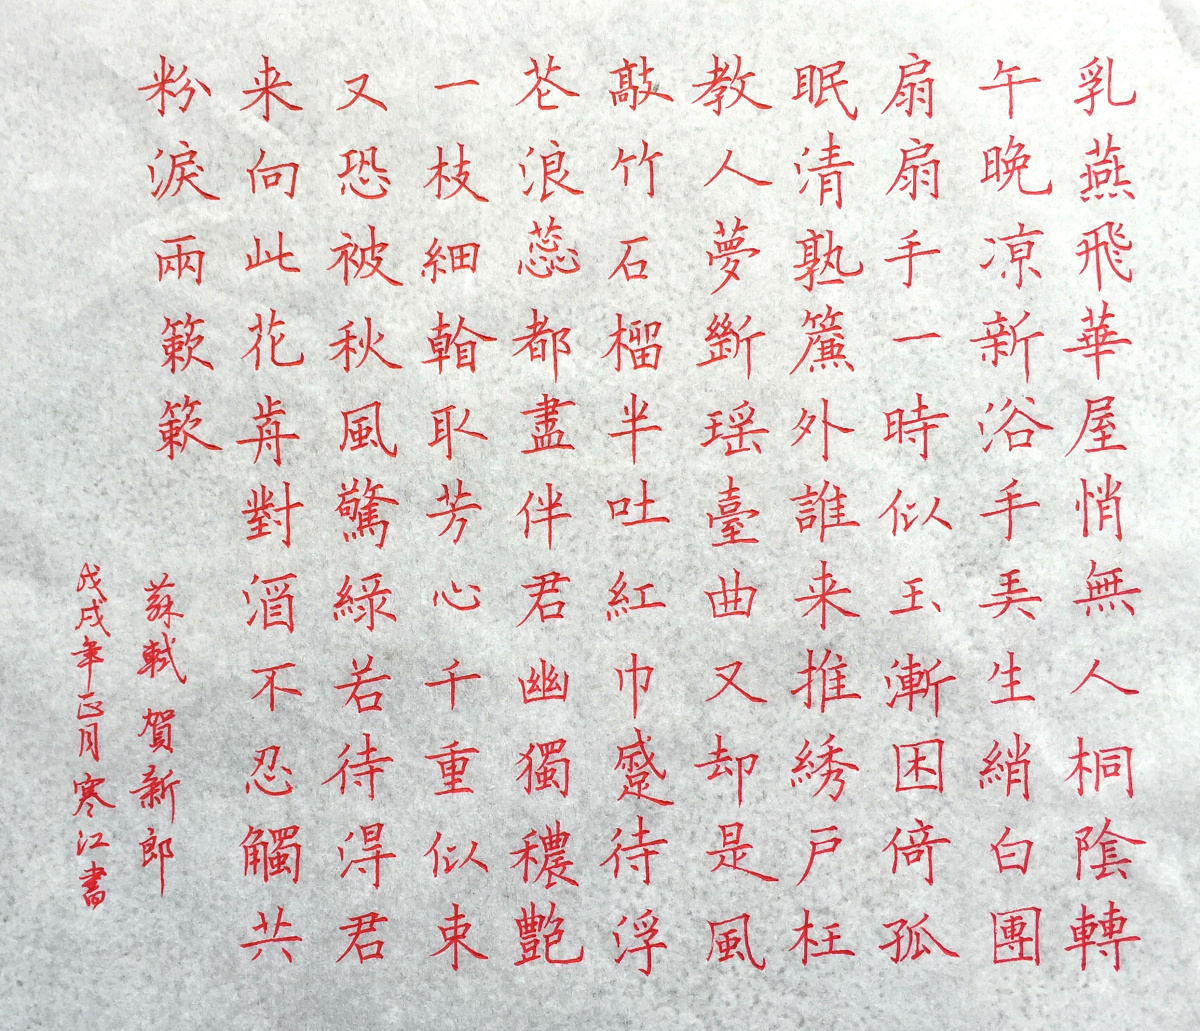 乳燕飛華屋悄無人桐陰轉
午晚凉新浴手弄生綃白團
扇扇手一時似玉漸困倚孤
眠清熟簾外誰来推綉户枉
教人夢斷瑶臺曲又却是風
敲竹石榴半吐紅巾蹙待浮
花浪蕊都盡伴君幽獨穠艷
一枝細看取芳心千重似束
又恐被秋風驚綠若待得君
来向此花前對酒不忍觸共
粉淚兩簌簌
蘇軾賀新郎
戊戌年正月寒江書